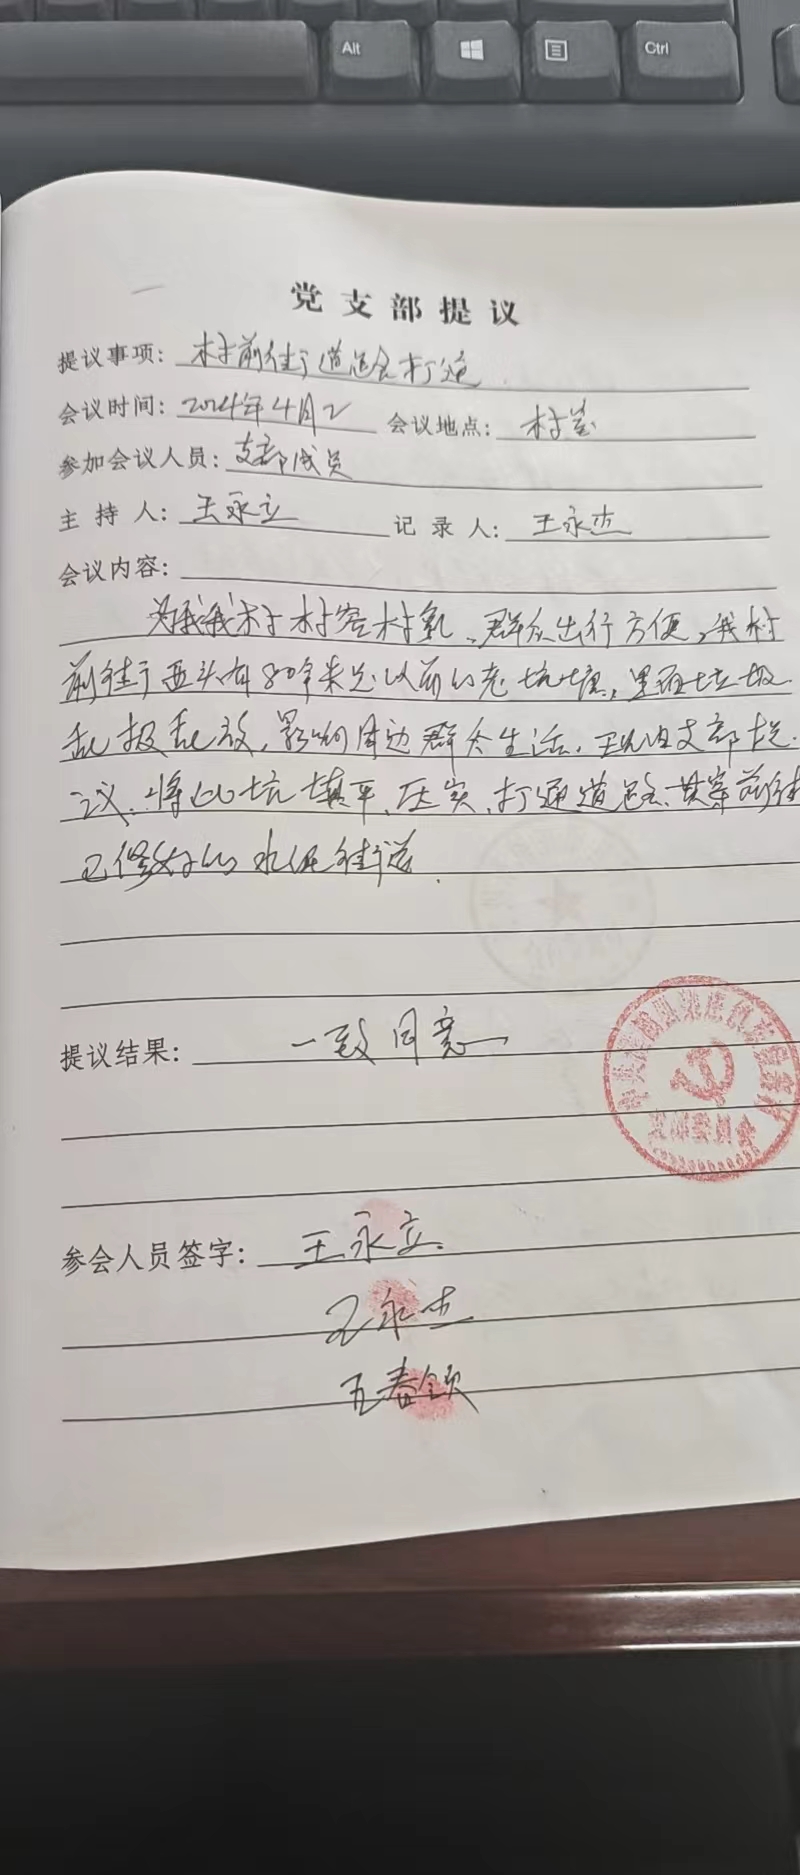 Alt
Ctrl
党支部提议
提议事项：村前街道路打通
会议时间：2024年4月2 会议地点：村室
参加会议人员：支部成员
主持人：王永立 记录人：王永杰
会议内容：
为我村村容村貌、群众出行方便，我村
前街西头有80余米是以前的老坑塘，里面垃圾
乱扔乱放，影响周边群众生活，现由支部提
议，将此坑填平、压实、打通道路、贯穿前街
已修好的水泥街道.
提议结果：一致同意
参会人员签字：王永立
王永杰
王春领